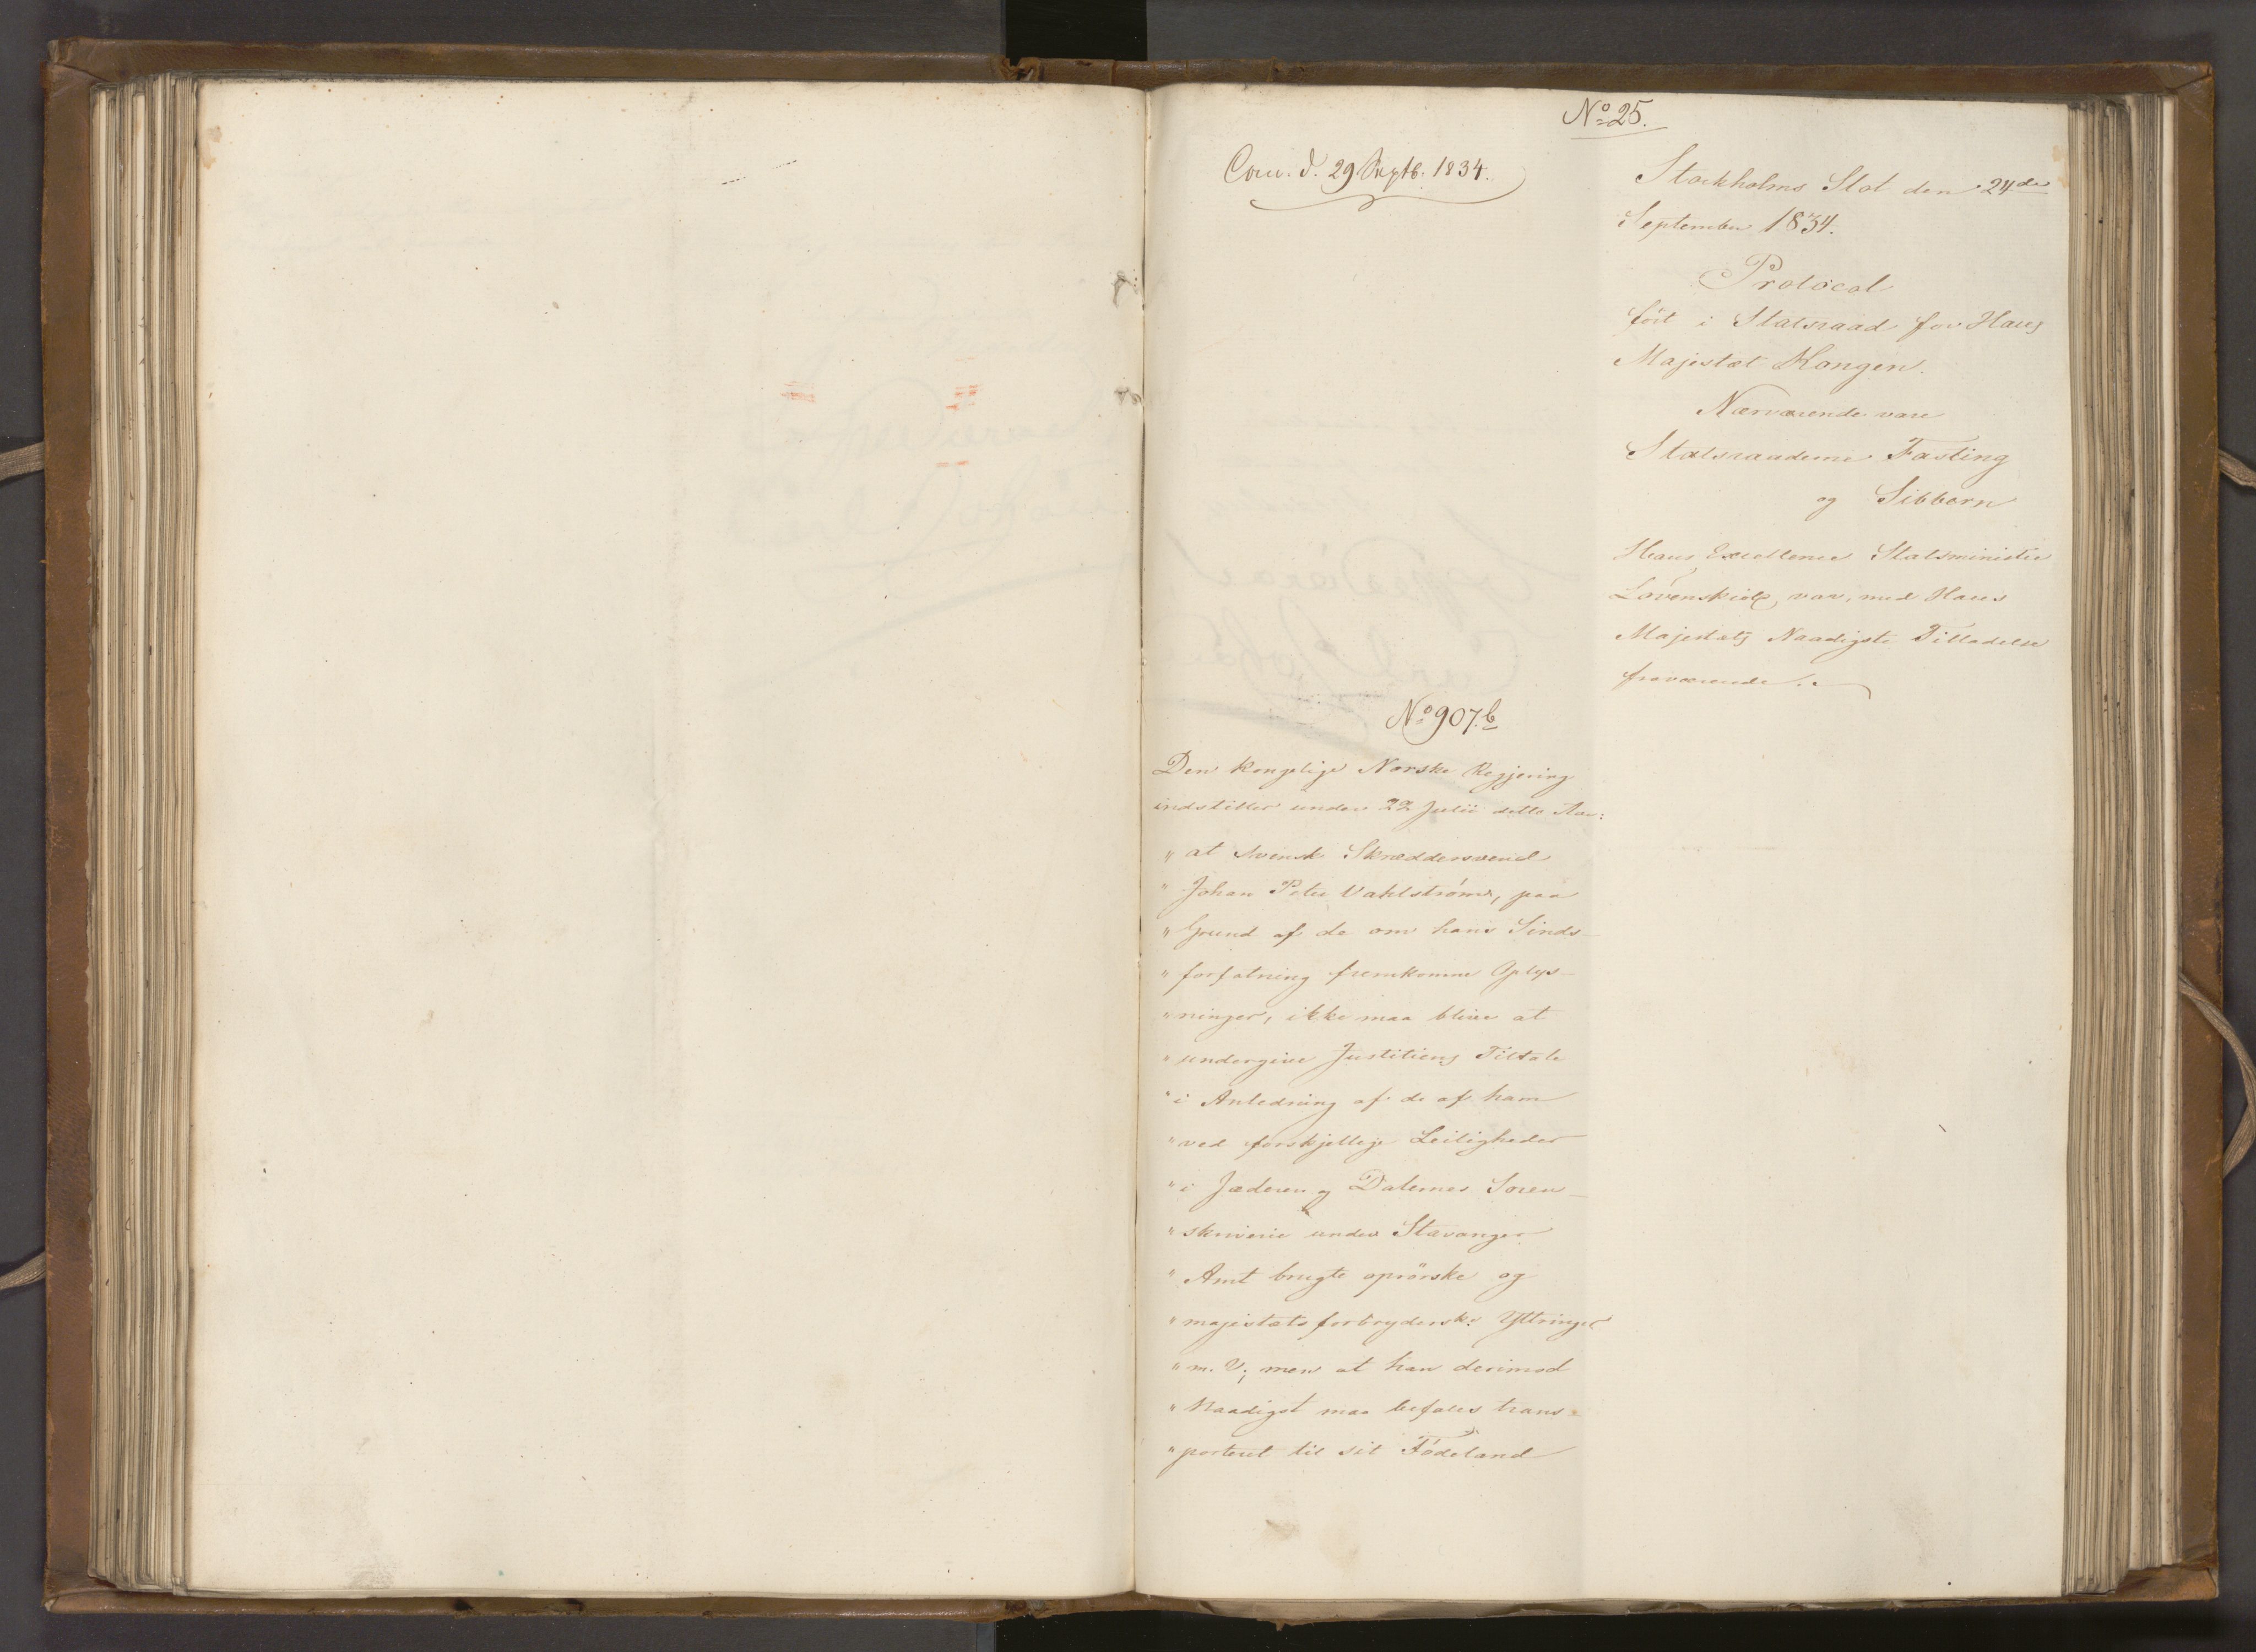 No 25.
Com. d. 29 Septb. 1834.
Stockholms Slot den 24de
September 1834.
Protocol
fört i Statsraad for Hans
Majestæt Kongen.
Nærværende vare
Statsraaderne Fasting
og Sibbern
Hans Excellence Statsminister
Lövenskiold, var, med Hans
Majestæts Naadigste Tilladelse
fraværende.
No 907.b
Den kongelige Norske Regjering
indstiller under 22 Julii dette Aar:
" at Svensk Skræddersvend
" Johan Peter Vahlström, paa
" Grund af de om hans Sinds-
" forfatning fremkomne Oplys-
" ninger, ikke maa blive at
" undergive Justitiens Tiltale
" i Anledning af de af ham
" ved forskjellige Leiligheder
" i Jæderen og Dalernes Soren-
" skriverie under Stavanger
" Amt brugte oprörske og
" majestætsforbryderske Yttringer
" m. V; men at han derimod
" Naadigst maa befales trans-
" porteret til sit Födeland